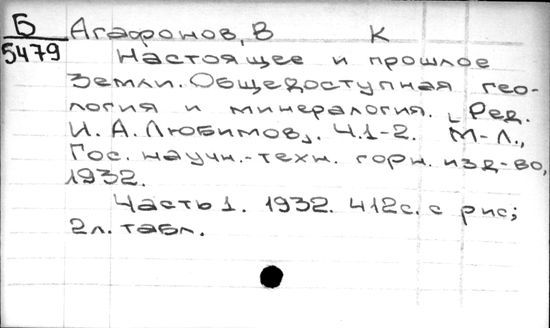 Б Агафонов, В К
5479
Настоящее и прошлое
Земли. Общедоступная гео-
логия и минералогия. [Ред.
И. А. Любимов]. Ч.1-2. М-Л.,
Гос. научн.-техн. горн. изд-во,
1932.
Часть 1. 1932. 412с. с рис;
2л. табл.